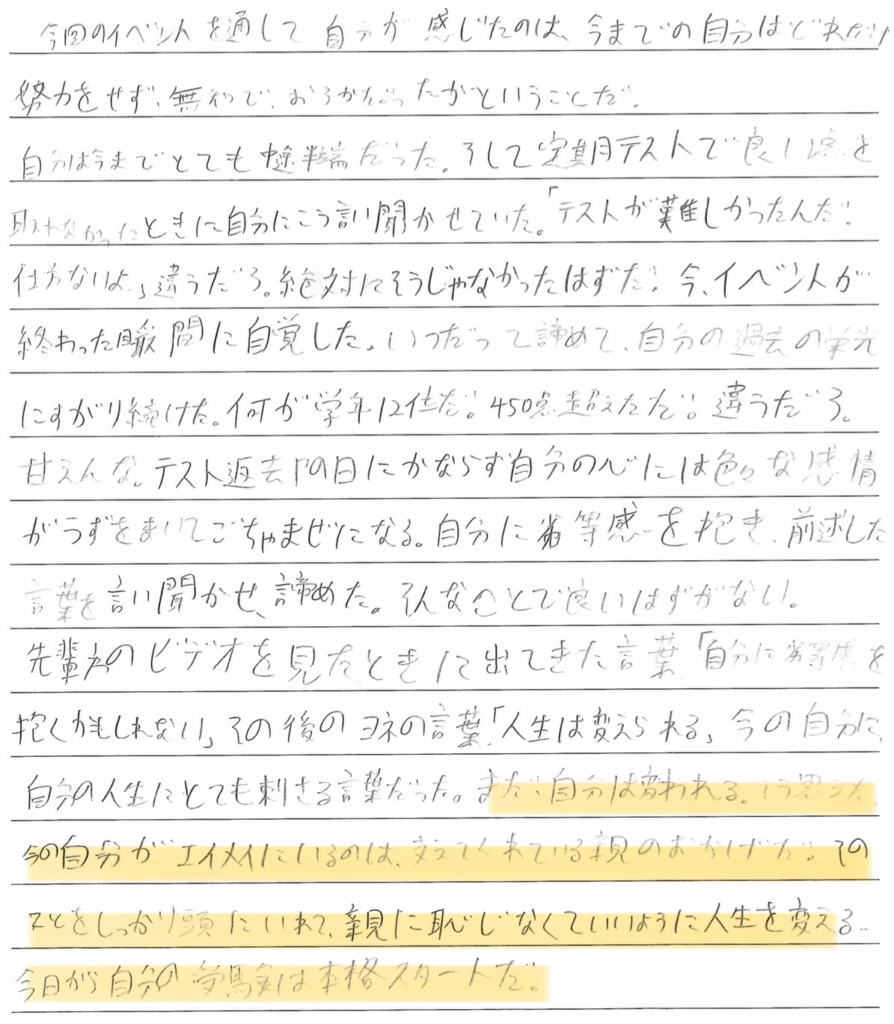 今回のイベントを通して自分が感じたのは、今までの自分はどれだけ
努力をせず、無知で、おろかだったかということだ。
自分は今までとても中途半端だった。そして定期テストで良い点を
取れなかったときに自分にこう言い聞かせていた。「テストが難しかったんだ!
仕方ないよ。」違うだろ。絶対にそうじゃなかったはずだ!今、イベントが
終わった瞬間に自覚した。いつだって諦めて、自分の過去の栄光
にすがり続けた。何が学年12位だ!450点超えただ!違うだろ。
甘えんな。テスト返去の日にかならず自分の心には色々な感情
がうずをまいてごちゃまぜになる。自分に劣等感を抱き、前述した
言葉を言い聞かせ、諦めた。そんなことで良いはずがない。
先輩方のビデオを見たときに出てきた言葉「自分に劣等感を
抱くかもしれない」その後のヨネの言葉、「人生は変えられる」今の自分に、
自分の人生にとても刺さる言葉だった。まだ自分は変われる。そう思った。
今の自分がエイメイにいるのは、支えてくれている親のおかげだ。その
ことをしっかり頭にいれて、親に恥じなくていいように人生を変える。
今日が自分の受験は本格スタートだ。